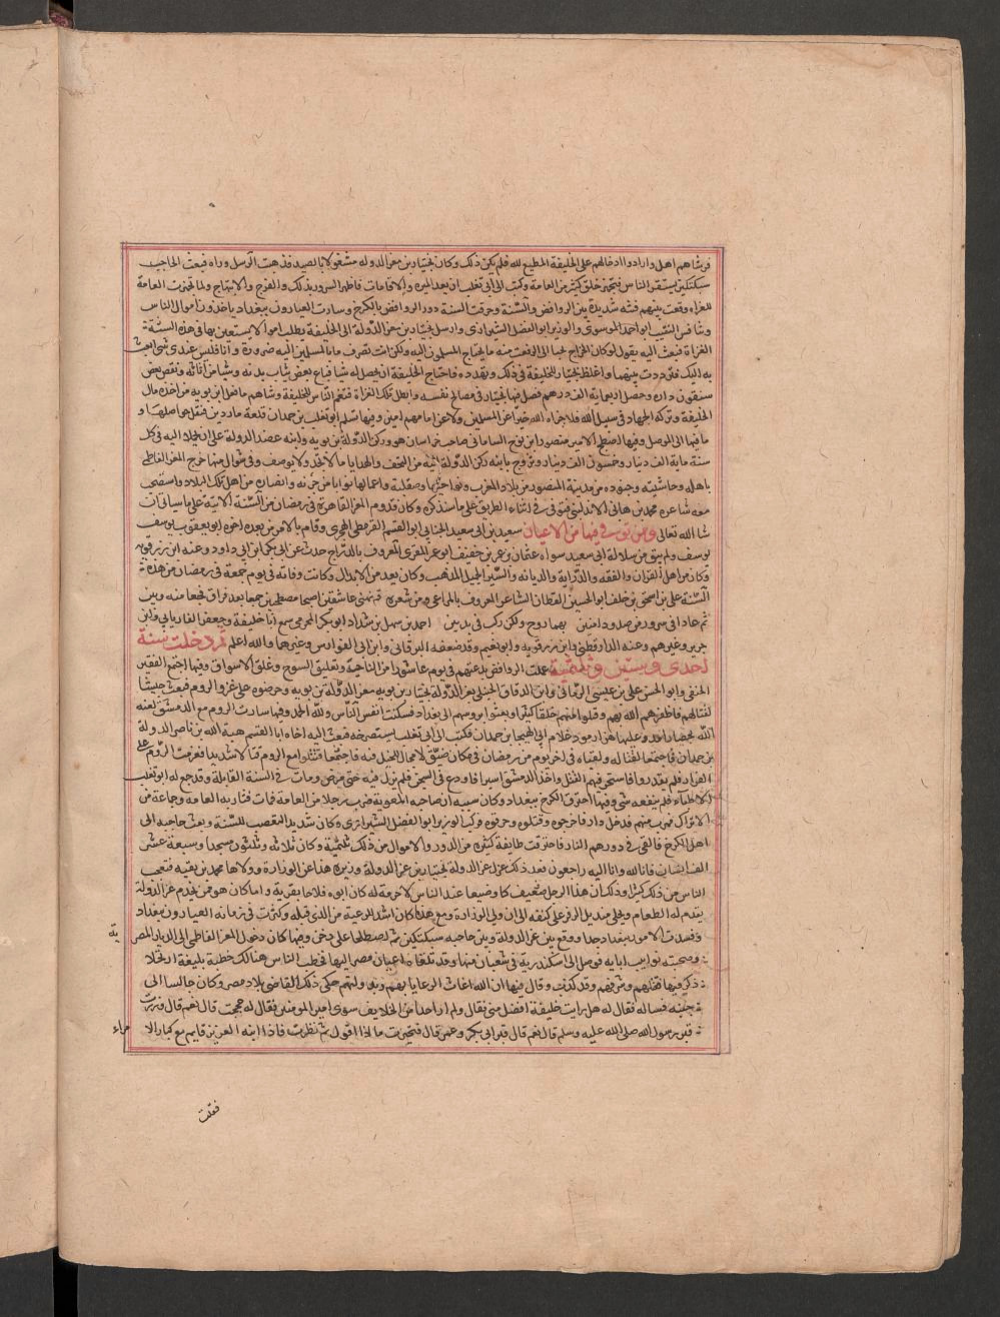 فرشاهم اهل وارادوا ادخالهم على الخليفة المطيع لله فلم يكن ذلك وكان بختيار بن معز الدوله مشغولا بالصيد فذهبت الرسل وراه فبعث الحاجب
سبكتكين يستنفر الناس فتجهز خلق كثير من العامة وكتب الى ابى تغلب ان يعد الميرة والاقامات فاظهر السرور بذلك والفرح والابتهاج ولما تجهزت العامة
للغزاه وقعت بينهم فتنة شديدة بين الروافض والسنة وحرقت السنة دور الروافض بالكرخ وسارت العيارون ببغداد ياخذون اموال الناس
وتنافس النقيب ابو احمد الموسوى والوزير ابو الفضل الشيرازى وارسل بختيار بن معز الدولة الى الخليفة يطلب اموالا يستعين بها فى هذه السنة
الغزاة فبعث اليه يقول لو كان الخراج يجبا الى لدفعت منه ما يحتاج المسلمون اليه ولكن انت تصرف ما بالمسلمين اليه ضرورة وانا فليس عندى شى ابعث
به اليك فترددت بينهما واغلظ بختيار للخليفة فى ذلك وتهدده فاحتاج الخليفة ان يحصل له شيا فباع بعض ثياب بدنه وشيا من اثاثه ونقض بعض
سقوف داره وحصل اربعماية الف درهم فصرفها بختيار فى مصالح نفسه وابطل تلك الغزاة فنقم الناس للخليفة وشاهم ما فعل ابن بويه من اخذه مال
الخليفة وتركه الجهاد فى سبيل الله فلا جزاه الله خيرا عن المسلمين ولا عن امامهم امين وفيها تسلم ابو تغلب بن حمدان قلعة ماردين فنقل حواصلها و
ما فيها الى الموصل وفيها اصطلح الامير منصور ابن نوح السامانى صاحب خراسان هو وركن الدولة بن بويه وابنه عضد الدولة على ان يحملا اليه فى كل
سنة ماية الف دينار وخمسون الف دينار وتزوج بابنه ركن الدولة اليه من التحف والهدايا ما لا يحد ولا يوصف وفى شوال منها خرج المعز الفاطمى
باهله وحاشيته وجنوده من مدينة المنصور من بلاد المغرب ونواحيها وصقلية واعمالها نوابا من حزبه وانصاره من اهل تلك البلاد واستصحب
معه شاعره محمد بن هانى الاندلسى فتوفى فى اثناء الطريق على ما سنذكره وكان قدوم المعز القاهرة فى رمضان من السنة الاتية على ما سياتى ان
شا الله تعالى ومن توفى فيها من الاعيان سعيد بن ابى سعيد الجنابى ابو القسم القرمطى الهجرى وقام بالامر من بعده اخوه ابو يعقوب يوسف
يوسف ولم يبق من سلالة ابى سعيد سواه عثمان بن عمر بن خفيف ابو عمر المقرى المعروف بالدراج حدث عن ابى بكر ابن ابى داود وعنه ابن رزقويه
وكان من اهل القران والفقه والدراية والديانة والستر الجميل المذهب وكان يعد من الابدال وكانت وفاته فى يوم جمعة فى رمضان من هذه
السنة على بن اسحق بن خلف ابو الحسين القطان الشاعر المعروف بالزاهى ومن شعره قم نهنى عاشقين اصبحا مصطلحين جمعا بعد فراق فجعا منه وبين
ثم عادا فى سرور من صدود امنين بهما روح ولكن ركب فى بدنين احمد بن سهل بن شداد ابو بكر المخرمى سمع ابا خليفة وجعفر الفاريابى وابن
جرير وغيرهم وعنه الدارقطنى وابن رزقويه وابو نعيم وقد ضعفه البرقانى وابن ابى الفوارس وغيرهما والله اعلم ثم دخلت سنة
احدى وستين وثلثمية عملت الروافض بدعتهم فى يوم عاشورا من النياحة وتعليق المسوح وغلق الاسواق وفيها اجتمع الفقيه
الحنفى وابو الحسن على بن عيسى الرمانى وابن الدقاق الحنبلى بعز الدولة بختيار بن بويه معز الدولة بن بويه وحرضوه على غزو الروم فبعث جيشا
لقتالهم فاظفرهم الله بهم وقتلوا منهم خلقا كثيرا وبعثوا بروسهم الى بغداد فسكنت انفس الناس ولله الحمد وفيها سارت الروم مع الدمستق لعنه
الله لحصار امد وعليها هزارمرد غلام ابى الهيجا بن حمدان فكتب الى ابى تغلب يستصرخه فبعث اليه اخاه ابا القسم هبة الله بن ناصر الدولة
بن حمدان فاجتمعا لقتاله ولقياه فى اخر يوم من رمضان فى مكان ضيق لا مجال للخيل فيه فاجتمعا فاقتتلوا مع الروم قتالا شديدا فعزمت الروم على
الفرار فلم يقدروا فاستحر فيهم القتل واخذ الدمستق اسيرا فاودع فى السجن فلم يزل فيه حتى مرض ومات فى السنة القابلة وقد جمع له ابو تغلب
الاطباء فلم ينفعه شى وفيها احترق الكرخ ببغداد وكان سببه ان صاحب المعونة ضرب رجلا من العامة فمات فثار به العامه وجماعة من
الاتراك فهرب منهم فدخل دارا فاخرجوه وقتلوه وحرقوه فركب الوزير ابو الفضل الشيرازى وكان شديد التعصب للسنة وبعث حاجبه الى
اهل الكرخ فالقى فى دورهم النار فاحترقت طايفة كثيرة من الدور والاموال من ذلك ثلثمية وكان ثلاثه وثلثون مسجدا وسبعة عشر
الف انسان فانا لله وانا اليه راجعون فعند ذلك عزل عز الدولة بختيار بن معز الدولة وزيره هذا عن الوزارة وولاها محمد بن بقيه فتعجب
الناس من ذلك كثيرا وذلك ان هذا الرجل سخيف كا وضيعا عند الناس لا حرمة له كان ابوه فلاحا بقرية واما كان هو فمن يخدم عز الدولة
يقدم له الطعام ويحمل منديل الزفر على كتفه الى ان ولى الوزارة ومع هذا كان اشد للرعية من الذى قبله وكثرت فى زمانه العيارون ببغداد
وفسدت الامور ببغداد جدا ووقع بين عز الدولة وبين حاجبه سبكتكين ثم اصطلحا على دخن وفيها كان دخول المعز الفاطمى الى الديار المصر
ية
وصحبته توابيت ابايه فوصل الى اسكندرية فى شعبان منها وقد تلقاه اعيان مصر اليها فخطب الناس هنالك خطبة بليغة ارتجلا
ذكر فيها فضلهم وشرفهم وقد كذب وقال فيها ان الله اغاث الرعايا بهم وبدولتهم حكى ذلك القاضى بلاد مصر وكان جالسا الى
جنبه فساله فقال له هل رايت خليفة افضل منى فقال ولم ار احدا من الخلايف سوى امير المومنين فقال له حججت قال نعم قال فزرت
قبر رسول الله صلى الله عليه وسلم قال نعم قال قبر ابى بكر وعمر قال فتحيرت ما اذا اقول ثم نظرت فاذا ابنه العزيز قايم مع كبار الا
مراء
فقلت